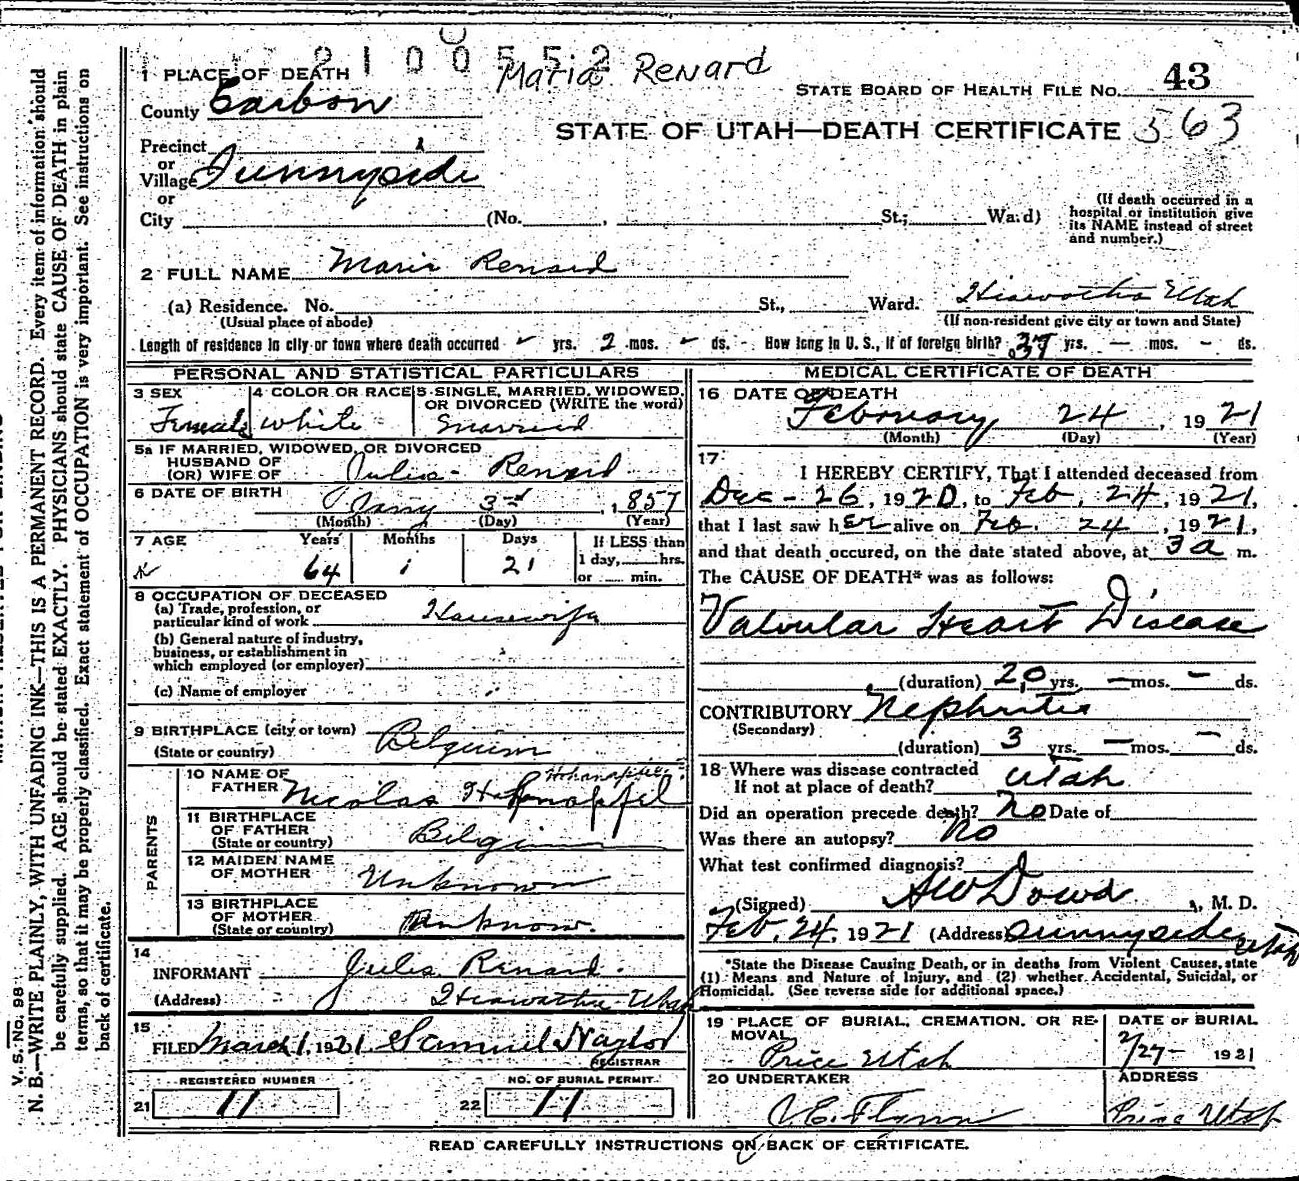 2100552
Maria Renard
1 PLACE OF DEATH
STATE BOARD OF HEALTH FILE No. 43
County Carbon
STATE OF UTAH—DEATH CERTIFICATE 563
Precinct
or
Village Sunnyside
or
City (No. , St.; Ward)
(If death occurred in a hospital or institution give its NAME instead of street and number.)
2 FULL NAME Maria Renard
(a) Residence. No. St., Ward. Hiawatha Utah
(Usual place of abode) (If non-resident give city or town and State)
Length of residence in city or town where death occurred yrs. 2 mos. ds. How long in U. S., if of foreign birth? 37 yrs. — mos. - ds.
PERSONAL AND STATISTICAL PARTICULARS
3 SEX Female
4 COLOR OR RACE white
5 SINGLE, MARRIED, WIDOWED, OR DIVORCED (WRITE the word) Married
5a IF MARRIED, WIDOWED, OR DIVORCED
HUSBAND OF
(OR) WIFE OF Julius Renard
6 DATE OF BIRTH 3rd, 1857
(Month) (Day) (Year)
7 AGE Years Months Days If LESS than
64 1 21 1 day, hrs.
or min.
8 OCCUPATION OF DECEASED
(a) Trade, profession, or
particular kind of work Housewife
(b) General nature of industry,
business, or establishment in
which employed (or employer)
(c) Name of employer
9 BIRTHPLACE (city or town)
(State or country) Belgium
PARENTS
10 NAME OF
FATHER Nicolas
11 BIRTHPLACE
OF FATHER
(State or country) Belgium
12 MAIDEN NAME
OF MOTHER Unknown
13 BIRTHPLACE
OF MOTHER
(State or country) Unknow.
14
INFORMANT Jules Renard.
(Address) Hiawatha Utah
15
FILED March 1, 1921. Samuel Naylor
REGISTRAR
REGISTERED NUMBER NO. OF BURIAL PERMIT
21 11 22 11
MEDICAL CERTIFICATE OF DEATH
16 DATE OF DEATH
February 24, 1921
(Month) (Day) (Year)
17
I HEREBY CERTIFY, That I attended deceased from
Dec - 26, 1920, to Feb. 24, 1921,
that I last saw her alive on Feb. 24, 1921,
and that death occured, on the date stated above, at 3a m.
The CAUSE OF DEATH* was as follows:
Valvular Heart Disease
(duration) 20 yrs. — mos. - ds.
CONTRIBUTORY Nephritis
(Secondary)
(duration) 3 yrs. — mos. - ds.
18 Where was disease contracted
If not at place of death? Utah
Did an operation precede death? No Date of
Was there an autopsy? No
What test confirmed diagnosis?
(Signed) A W Dowd, M. D.
Feb. 24, 1921 (Address) Sunnyside Utah
*State the Disease Causing Death, or in deaths from Violent Causes, state
(1) Means and Nature of Injury, and (2) whether Accidental, Suicidal, or
Homicidal. (See reverse side for additional space.)
19 PLACE OF BURIAL, CREMATION, OR RE-
MOVAL Price Utah
DATE OF BURIAL
2/27- 1921
20 UNDERTAKER
Flynn
ADDRESS
Price Utah
READ CAREFULLY INSTRUCTIONS ON BACK OF CERTIFICATE.
V. S. No. 98
N. B.—WRITE PLAINLY, WITH UNFADING INK—THIS IS A PERMANENT RECORD. Every item of information should
be carefully supplied. AGE should be stated EXACTLY. PHYSICIANS should state CAUSE OF DEATH in plain
terms, so that it may be properly classified. Exact statement of OCCUPATION is very important. See instructions on
back of certificate.